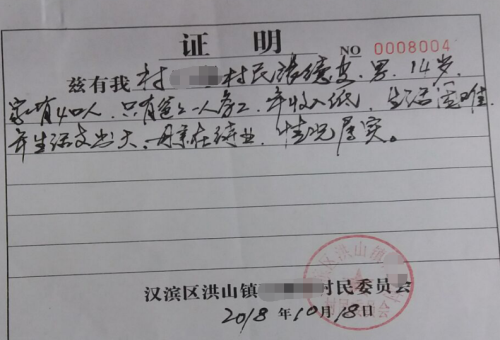 证明
NO 0008004
兹有我村 村民 男、14岁
家有4口人、只有爸一人务工、年收入低、生活困难
年生活支出大、母亲在待业、情况属实。
汉滨区洪山镇 村民委员会
2018年10月18日